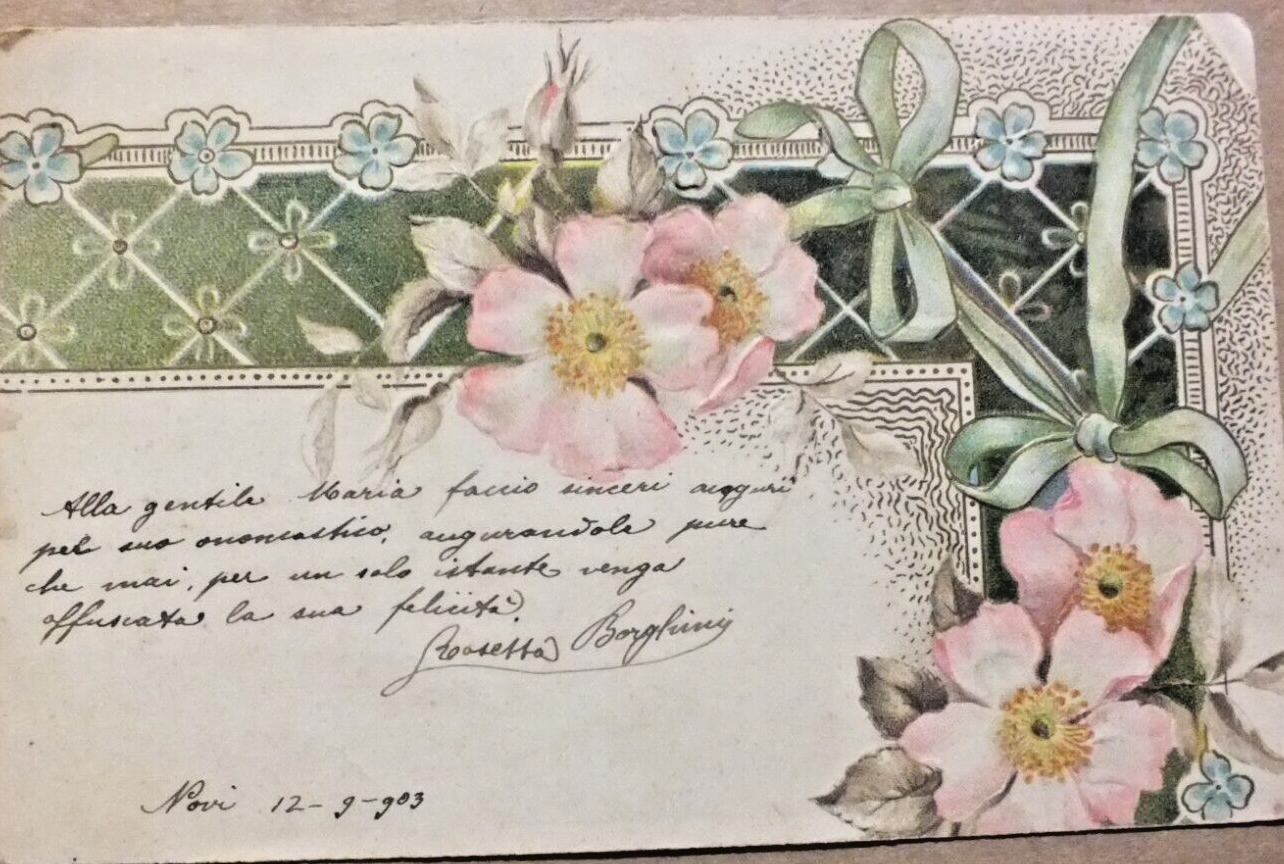 Alla gentile Maria faccio sinceri auguri
pel suo onomastico, augurandole pure
che mai, per un solo istante venga
offuscata la sua felicità.
Rosetta Borghini
Novi 12-9-903